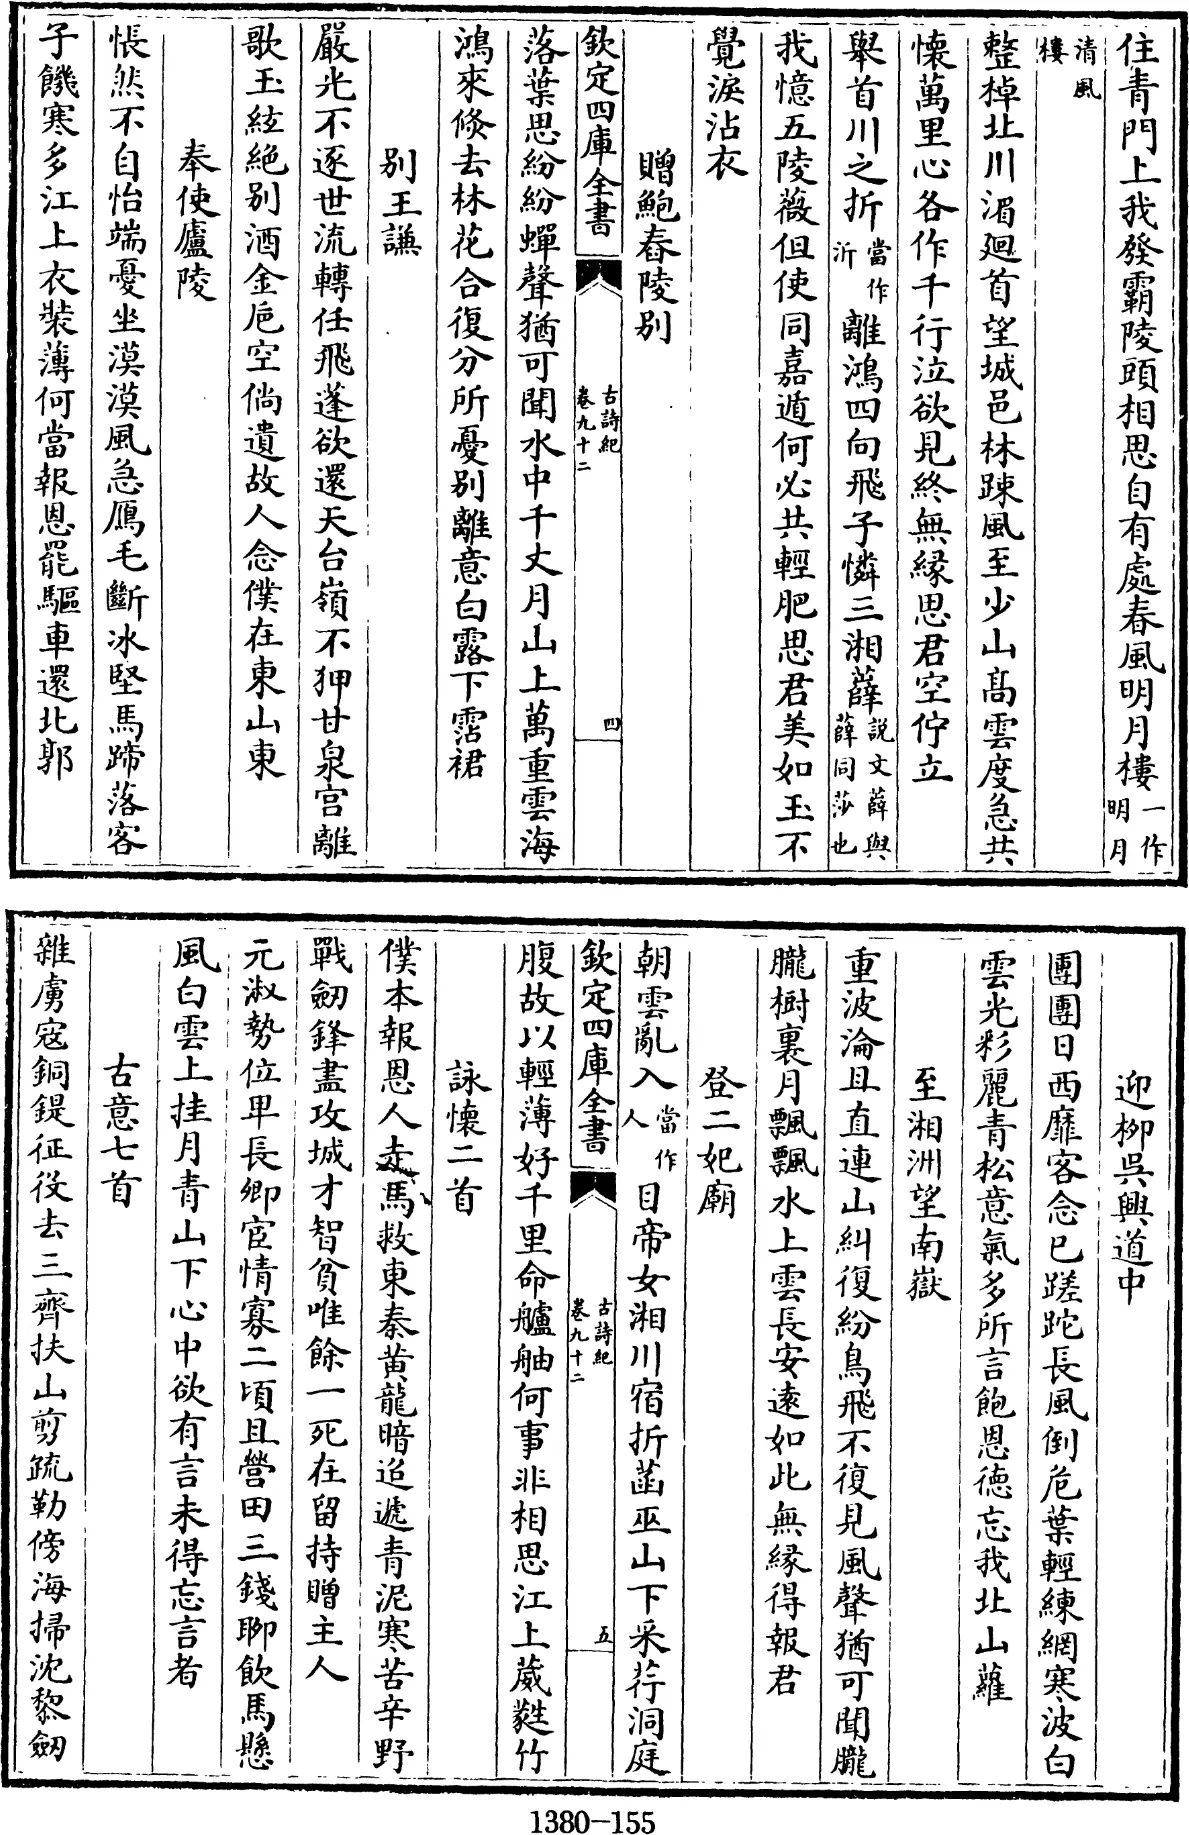 住青門上我發霸陵頭相思自有處春風明月樓一作明月
清風樓
整棹北川湄迴首望城邑林踈風至少山髙雲度急共
懷萬里心各作千行泣欲見終無緣思君空佇立
舉首川之折當作泝離鴻四向飛子憐三湘薛説文薛與薛同莎也
我憶五陵薇但使同嘉遁何必共輕肥思君美如玉不
覺淚沾衣
贈鮑舂陵别
欽定四庫全書
古詩紀卷九十二
四
落葉思紛紛蟬聲猶可聞水中千丈月山上萬重雲海
鴻來倐去林花合復分所憂别離意白露下霑裙
别王謙
嚴光不逐世流轉任飛蓬欲還天台嶺不狎甘泉宫離
歌玉絃絶别酒金巵空倘遺故人念僕在東山東
奉使廬陵
悵然不自怡端憂坐漠漠風急鴈毛斷冰堅馬蹄落客
子饑寒多江上衣裝薄何當報恩罷驅車還北郭
迎栁吳興道中
團團日西靡客念已蹉跎長風倒危葉輕練網寒波白
雲光彩麗青松意氣多所言飽恩德忘我北山蘿
至湘洲望南嶽
重波淪且直連山糾復紛鳥飛不復見風聲猶可聞朧
朧樹裏月飄飄水上雲長安逺如此無緣得報君
登二妃廟
朝雲亂入當作人目帝女湘川宿折菡巫山下采荇洞庭
欽定四庫全書
古詩紀卷九十二
五
腹故以輕薄好千里命艫舳何事非相思江上葳蕤竹
詠懷二首
僕本報恩人走馬救東秦黄龍暗迢遞青泥寒苦辛野
戰劒鋒盡攻城才智貧唯餘一死在留持贈主人
元淑勢位卑長卿宦情寡二頃且營田三錢聊飲馬懸
風白雲上挂月青山下心中欲有言未得忘言者
古意七首
雜虜寇銅鍉征役去三齊扶山剪疏勒傍海掃沈黎劒
1380-155